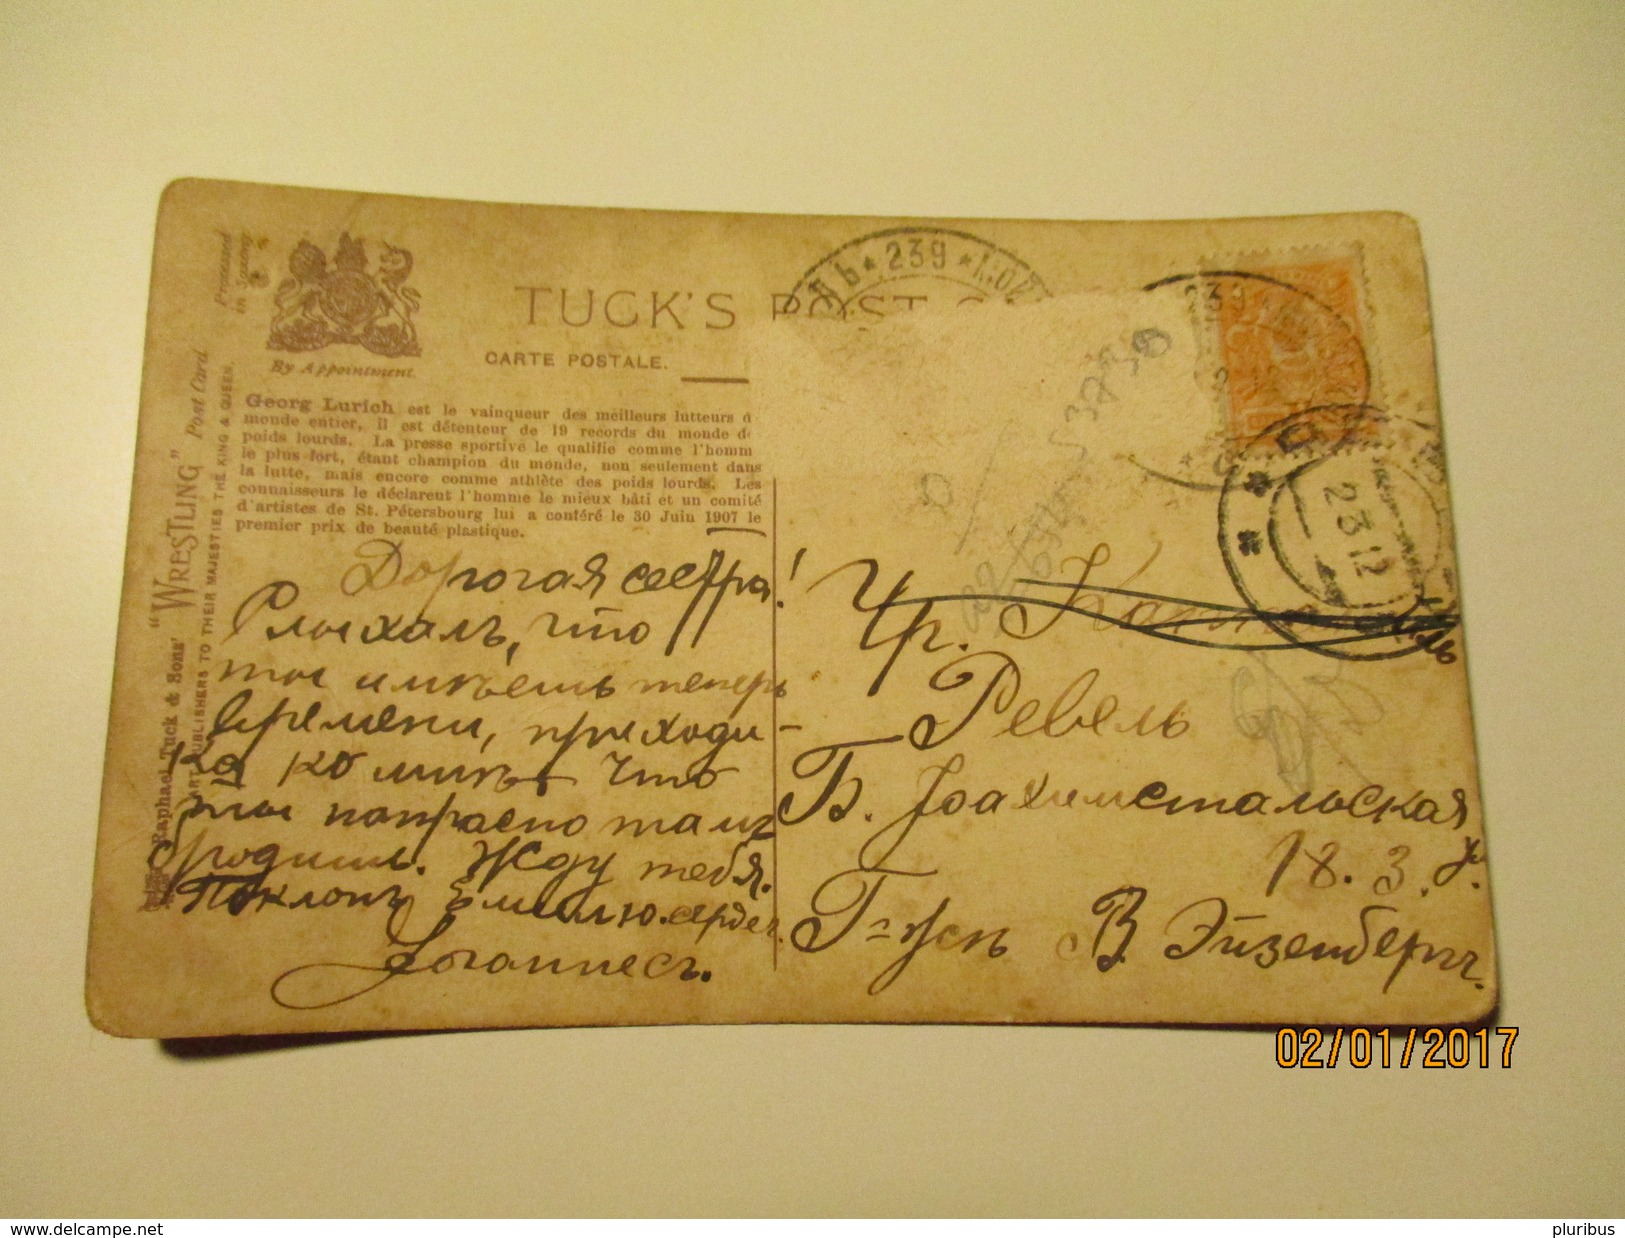 TUCK'S POST C
CARTE POSTALE.
By Appointment.
Processed
in Saxony
Raphael Tuck & Sons' "WRESTLING" Post Card
ART PUBLISHERS TO THEIR MAJESTIES THE KING & QUEEN.
Georg Lurich est le vainqueur des meilleurs lutteurs d
monde entier, il est détenteur de 19 records du monde de
poids lourds. La presse sportive le qualifie comme l'homm
le plus fort, étant champion du monde, non seulement dans
la lutte, mais encore comme athlète des poids lourds. Les
connaisseurs le déclarent l'homme le mieux bâti et un comité
d'artistes de St. Pétersbourg lui a conféré le 30 Juin 1907 le
premier prix de beauté plastique.
Дорогая сестра!
Слыхалъ, что
ты имѣешь теперь
времени, приходи-
ка ко мнѣ. что
ты напрасно тамъ
бродишь. Жду тебя.
Поклонъ Эмилію. сердеч.
Іоганнесъ.
239
239
23 12
Чр.
Ревель
Б. Іоахимстальская
18. 3.
Г=жѣ В. Эйзенбергъ.
02/01/2017
www.delcampe.net
pluribus